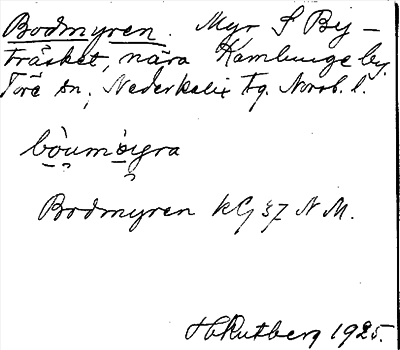 Bodmyren. Myr S By-
träsket, nära Kamlunge by.
Töre sn, Nederkalix tg. Norrb. l.
Bodmyren KG 37 N M.
H. Rutberg 1925.